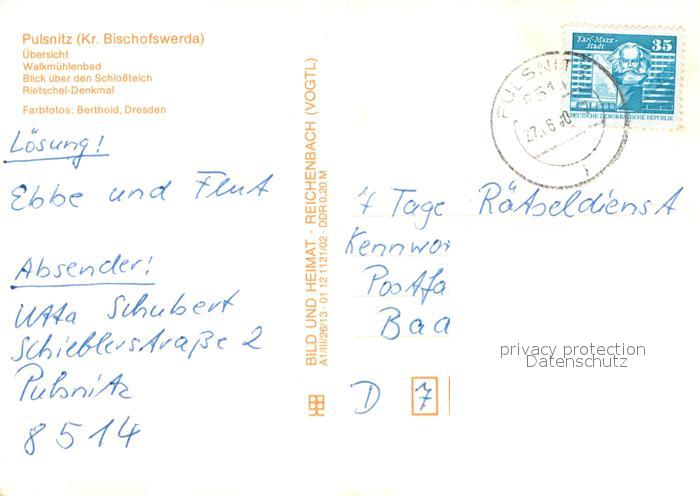 Pulsnitz (Kr. Bischofswerda)
Übersicht
Walkmühlenbad
Blick über den Schloßteich
Rietschel-Denkmal
Farbfotos: Berthold, Dresden
Lösung!
Ebbe und Flut
Absender!
Utta Schubert
Schießlerstraße 2
Pulsnitz
8514
BILD UND HEIMAT · REICHENBACH (VOGTL)
A1/III/26/13 · 01 12 1121/02 · DDR 0,20 M
Karl-Marx-Stadt
35
DEUTSCHE DEMOKRATISCHE REPUBLIK
PULSNITZ
7 Tage Rätseldienst
Kennwor
Postfa
Baa
D 7
privacy protection
Datenschutz